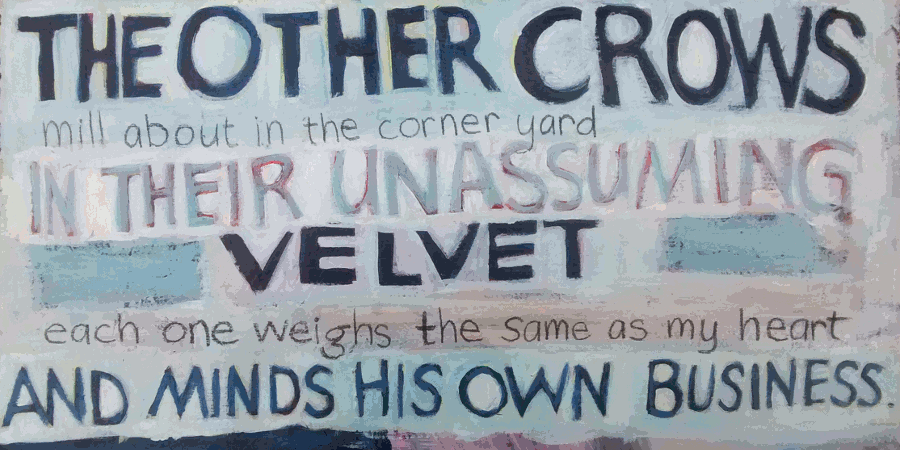 THE OTHER CROWS
mill about in the corner yard
IN THEIR UNASSUMING
VELVET
each one weighs the same as my heart
AND MINDS HIS OWN BUSINESS.